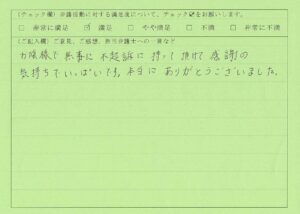 (チェック欄) 弁護活動に対する満足度について、チェック☑をお願いします。
□ 非常に満足 ☑ 満足 □ やや満足 □ 不満 □ 非常に不満
(ご記入欄) ご意見、ご感想、担当弁護士への一言など
お陰様で無事に不起訴に持って頂けて感謝の
気持ちでいっぱいです。本当にありがとうございました。